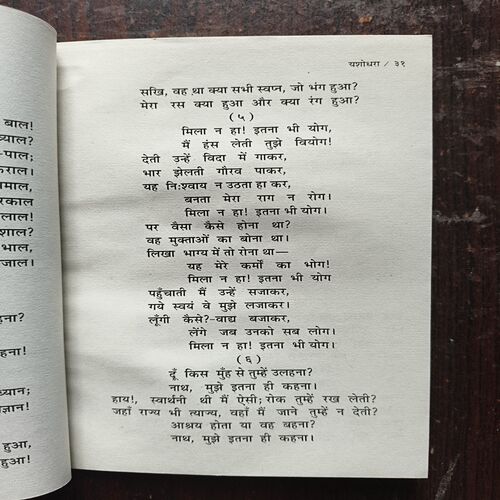 बाल!
ख्याल?
-पाल;
कराल।
माल,
रकाल
लाल!
शाल?
भाल,
जाल।
हना?
हना!
ध्यान;
ज्ञान!
हुआ,
हुआ।
यशोधरा / ३१
सखि, वह था क्या सभी स्वप्न, जो भंग हुआ?
मेरा रस क्या हुआ और क्या रंग हुआ?
(५)
मिला न हा! इतना भी योग,
मैं हंस लेती तुझे वियोग!
देती उन्हें विदा में गाकर,
भार झेलती गौरव पाकर,
यह निःश्वाय न उठता हा कर,
बनता मेरा राग न रोग।
मिला न हा! इतना भी योग।
पर वैसा कैसे होना था?
वह मुक्ताओं का बोना था।
लिखा भाग्य में तो रोना था—
यह मेरे कर्मों का भोग!
मिला न हा! इतना भी योग
पहुँचाती मैं उन्हें सजाकर,
गये स्वयं वे मुझे लजाकर।
लूँगी कैसे?-वाद्य बजाकर,
लेंगे जब उनको सब लोग।
मिला न हा! इतना भी योग।
(६)
दूँ किस मुँह से तुम्हें उलहना?
नाथ, मुझे इतना ही कहना।
हाय!, स्वार्थनी थी मैं ऐसी; रोक तुम्हें रख लेती?
जहाँ राज्य भी त्याज्य, वहाँ मैं जाने तुम्हें न देती?
आश्रय होता या वह बहना?
नाथ, मुझे इतना ही कहना।